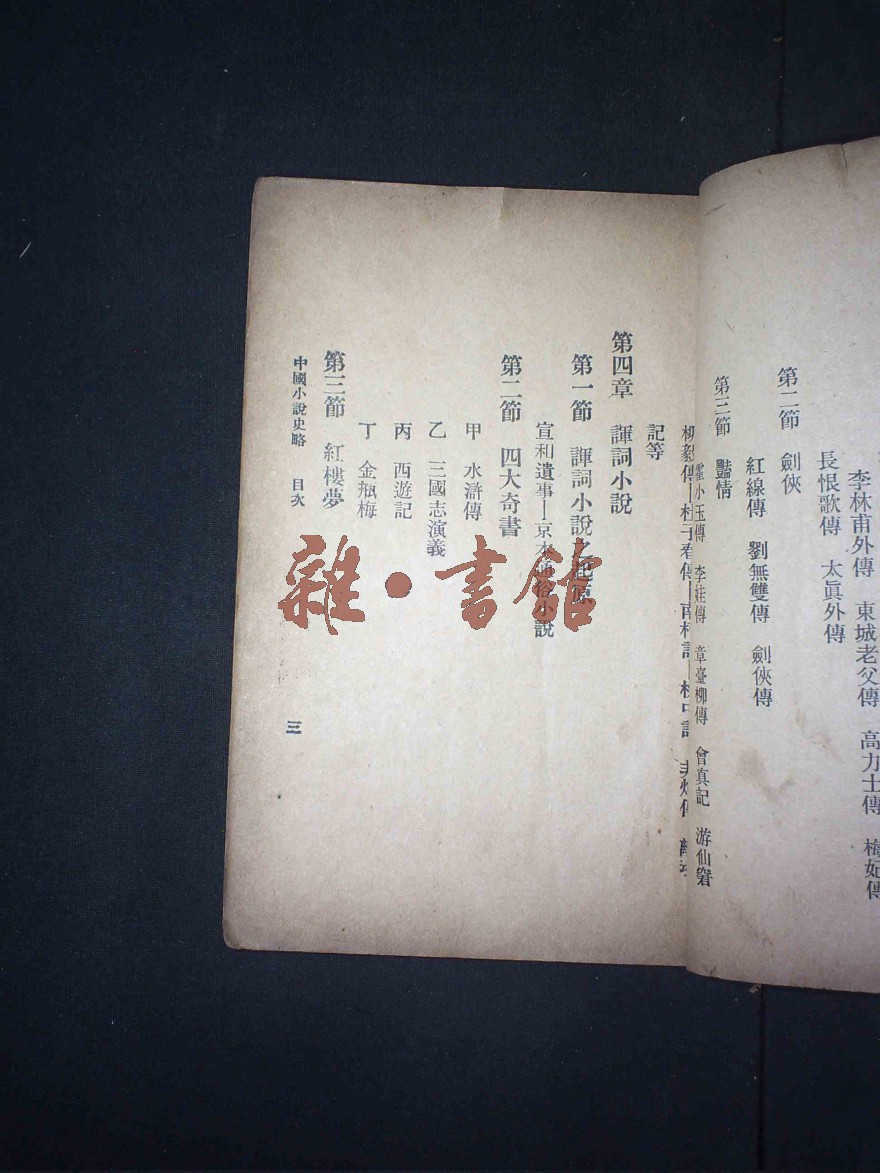 李林甫外傳 東城老父傳 高力士傳 梅妃傳
長恨歌傳 太眞外傳
第二節 劍俠
紅線傳 劉無雙傳 劍俠傳
第三節 豔情
霍小玉傳 李娃傳 章臺柳傳 會真記 游仙窟
柳毅傳 杜子春傳 南柯記
記等
第四章 諢詞小說
第一節 諢詞小說之起原
宣和遺事 京本通俗小說
第二節 四大奇書
甲 水滸傳
乙 三國志演義
丙 西遊記
丁 金瓶梅
第三節 紅樓夢
中國小說史略 目次
三
雜·書館